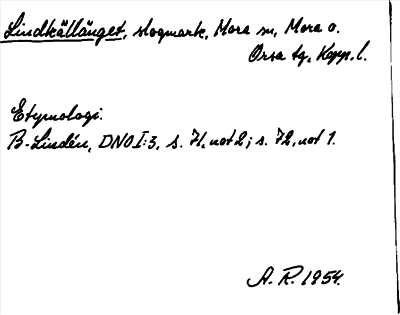 Lindkällänget, skogmark, Mora sn, Mora o.
Orsa tg, Kopp. l.
Etymologi.
B. Lindén, DNO I:3, s. 71, not 2; s. 72, not 1.
A. R. 1954.